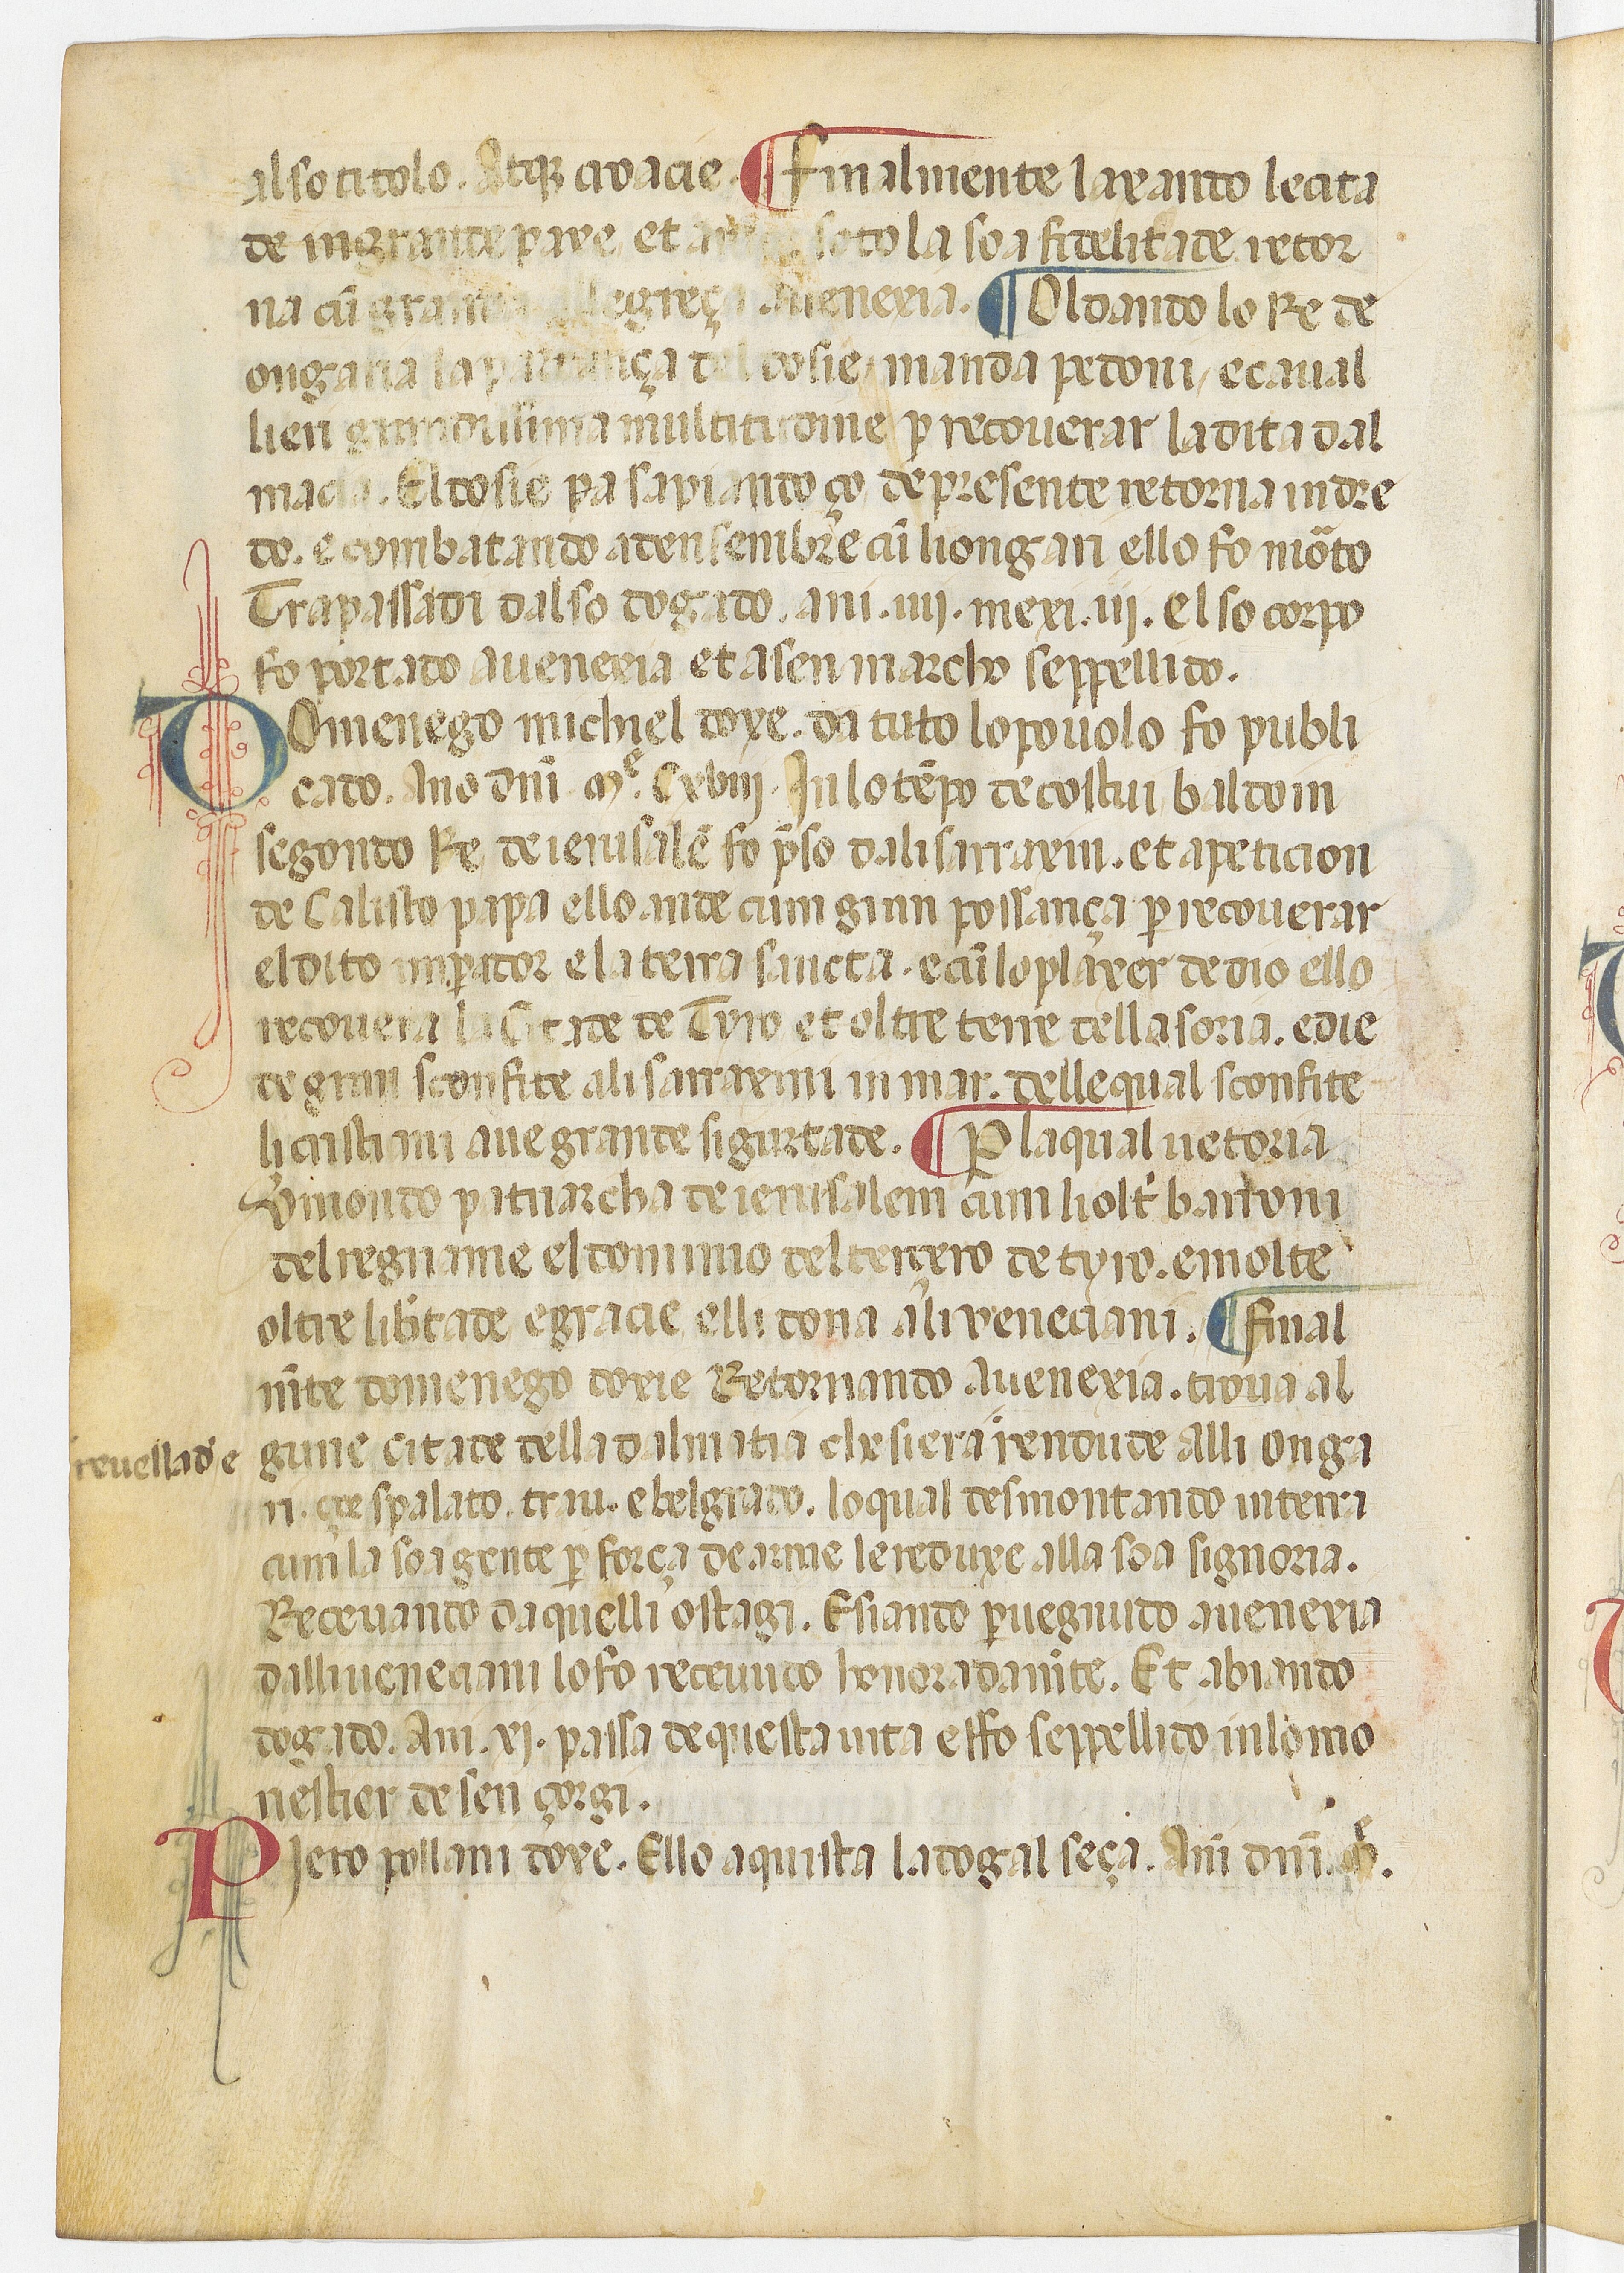 al so titolo. Atqꝫ croacie. ¶ Finalmente laxando le cita
de in grande paxe et a soto la soa fidelitade retor
na cu̅ grande alegreça a Venexia. ¶ Oldando lo Re de
ongaria la partança del dosie manda pedoni, e caual
lieri grandissima multitudine ꝑ recouerar la dita dal
macia. El dosie pa sapiando ço de presente retorna indre
do. e combatando adensembre cu̅ li ongari ello fo mo̅to
Trapassadi dal so dogado. ani. iiii. mexi. iii. el so corpo
fo portado a uenexia et a sen marcho seppellido.
Domenego michiel doxe. da tuto lo pouolo fo publi
cado. Ano dn̅i. Mͤ. Cxviiij. In lo te̅po de costui baldoin
segondo Re de ierusale̅ fo p̅so dali sarraxin. et a peticion
de Calisto papa ello ande cum gran possança ꝑ recouerar
el dito imꝑador e la terra sancta. e cu̅ lo plaxer de dio ello
recouera la Citade de Tyro et oltre terre della soria. e die
de gran sconfite ali sarraxini in mar. delle qual sconfite
li cristiani aue grande sigurtade. ¶ P la qual uetoria
Vimondo patriarcha de ierusalem cum li oltr̅ barroni
del regname el dominio del terçero de tyro. e molte
oltre lib̅tade e gracie elli dona ali veneciani. ¶ final
m̅te domenego doxie Retornando a uenexia. troua al
reuellad'e
gune citade della dalmatia che siera rendude alli onga
ri. çoe spalato. trau. e belgrado. lo qual desmontando in terra
cum la soa gente ꝑ força de arme le reduxe alla soa signoria.
Receuando da quelli ostagi. E siando ꝑuegnudo a uenexia
dalli ueneciani lo fo receuudo honoradam̅te. Et abiando
dogado. Ani. xj. passa de questa uita e ffo seppellido in lo mo
nestier de sen çorgi.
Piero pollani doxe. Ello aquista la dogal seça. An̅i dn̅i. Mͤ.